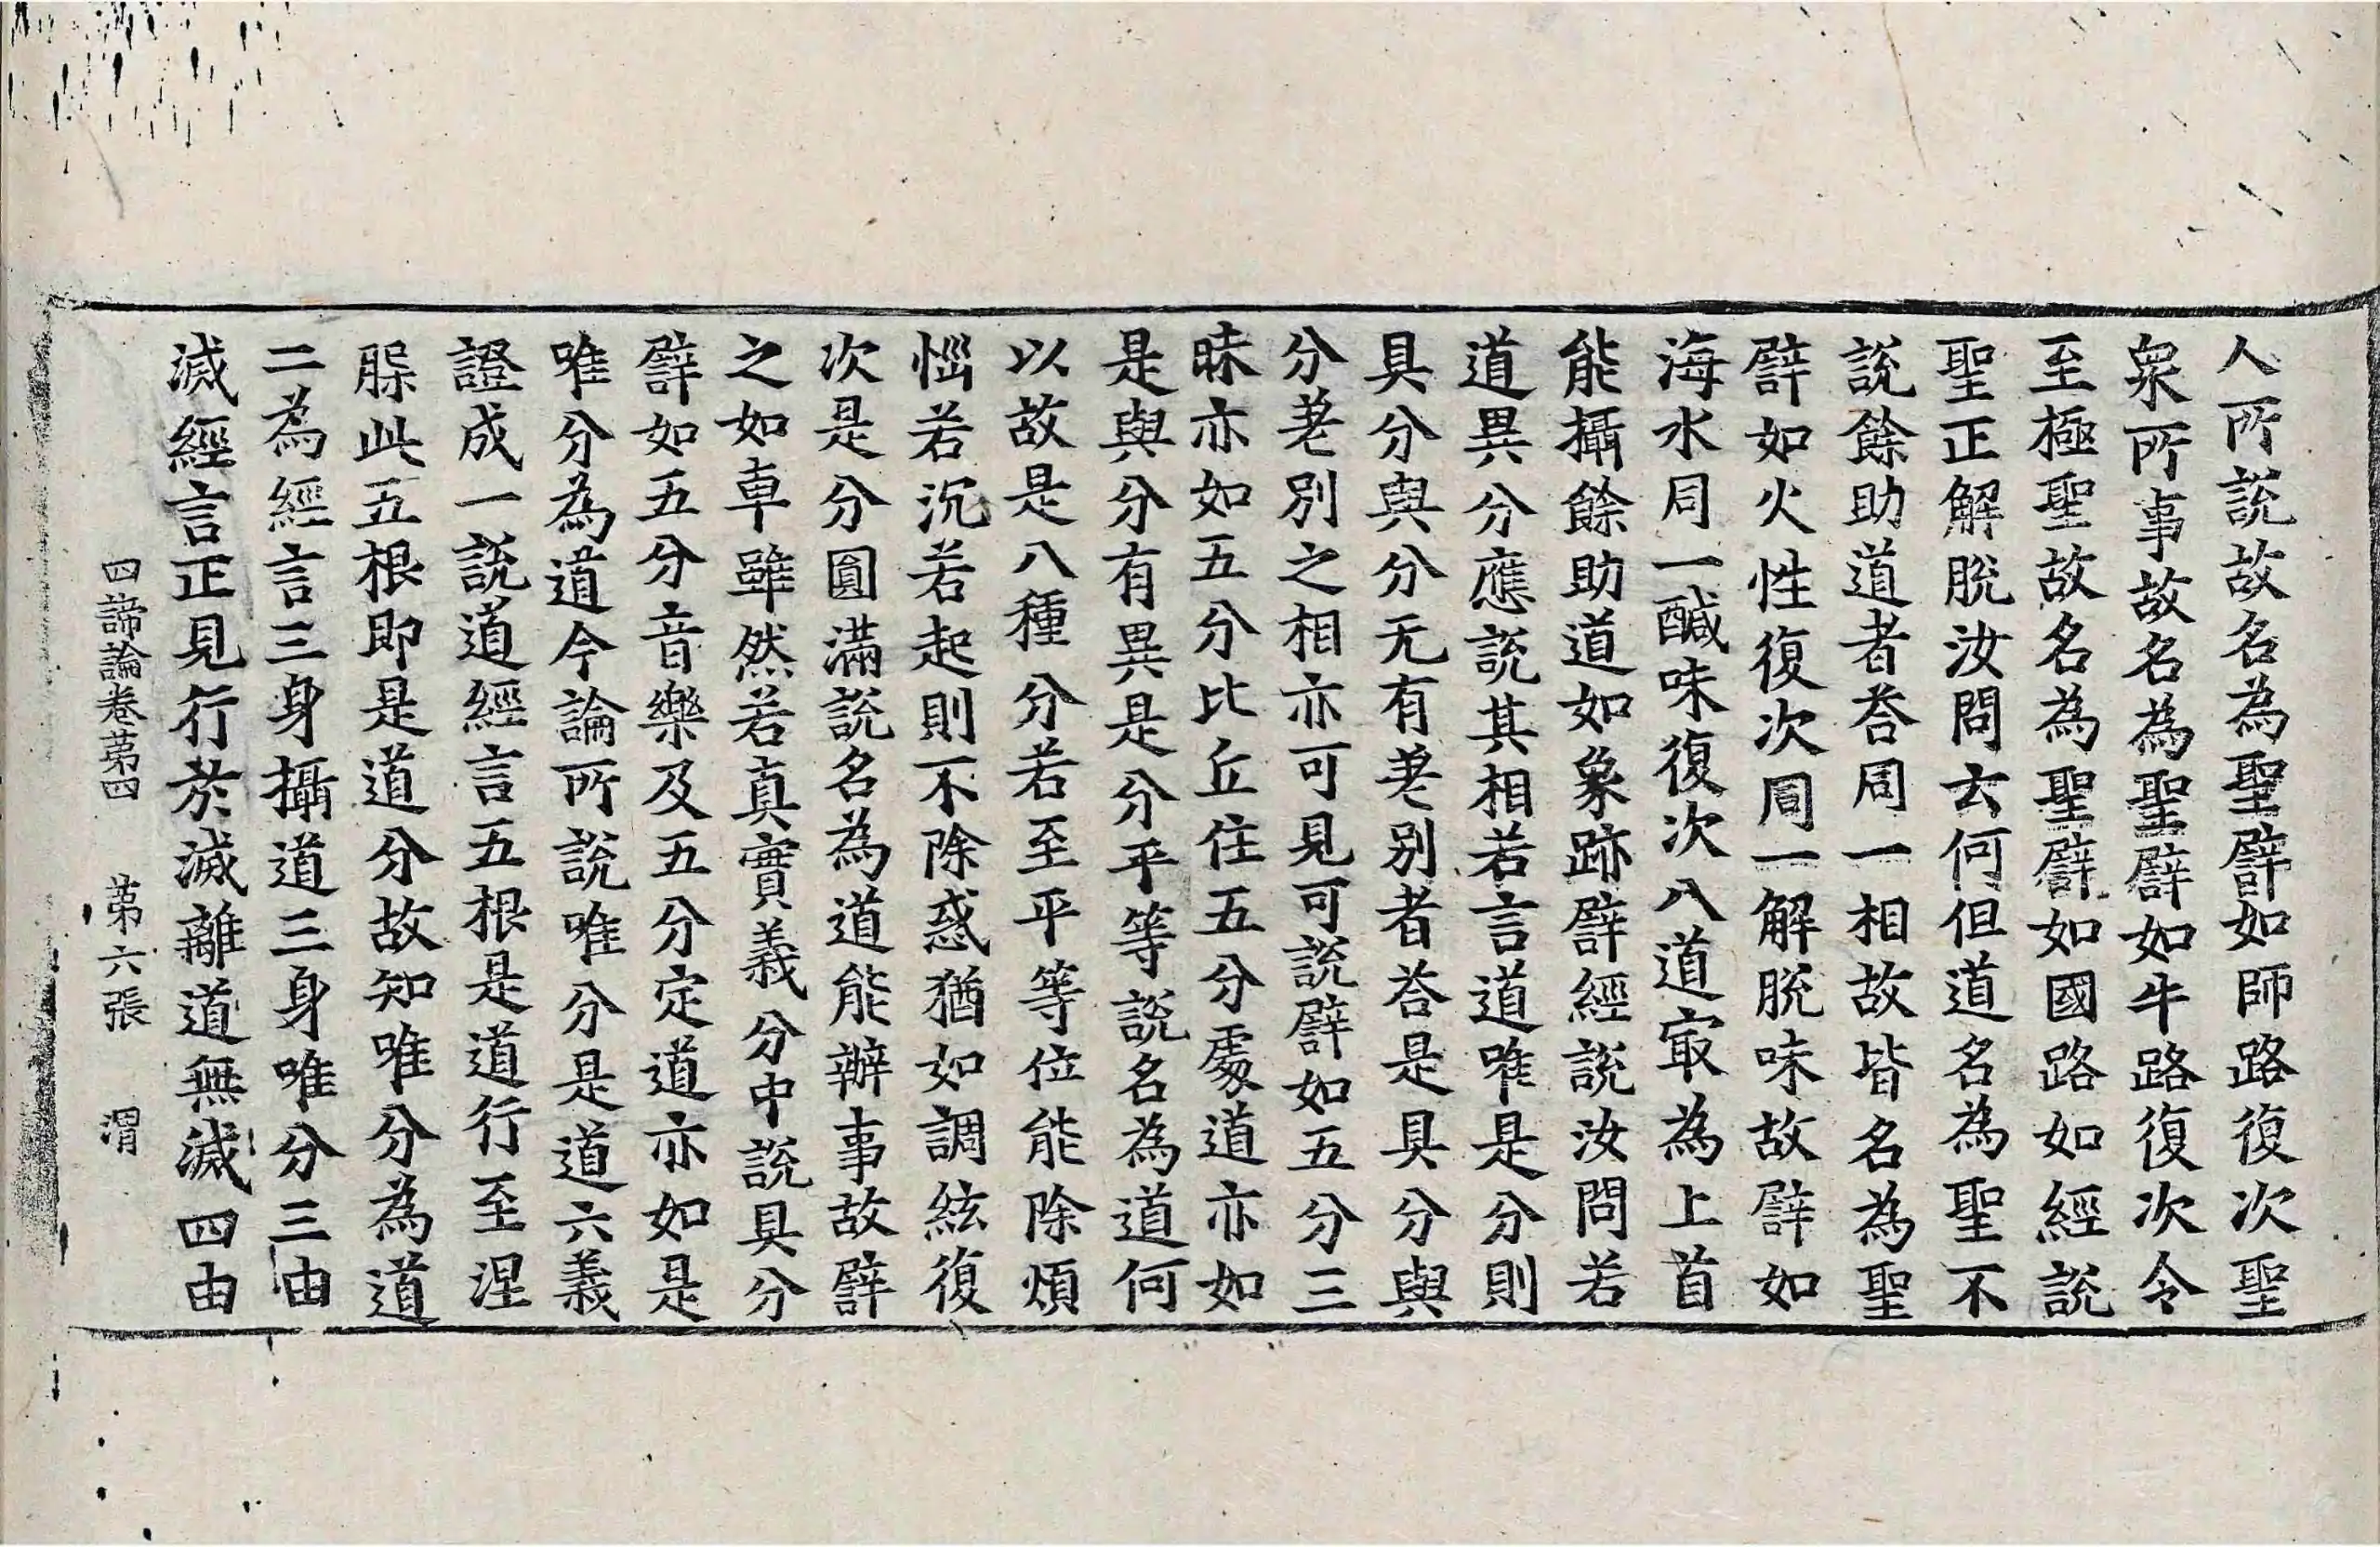 人所說故名為聖譬如師路復次聖
衆所事故名為聖譬如牛路復次令
至極聖故名為聖譬如國路如經說
聖正解脫汝問云何但道名為聖不
說餘助道者荅同一相故皆名為聖
譬如火性復次同一解脫味故譬如
海水同一醎味復次八道㝡為上首
能攝餘助道如象跡譬經說汝問若
道異分應說其相若言道唯是分則
具分與分无有差別者荅是具分與
分差別之相亦可見可說譬如五分三
昧亦如五分比丘住五分處道亦如
是與分有異是分平等說名為道何
以故是八種分若至平等位能除煩
惱若沉若起則不除惑猶如調絃復
次是分圓滿說名為道能辦事故譬
之如車雖然若真實義分中說具分
譬如五分音樂及五分定道亦如是
唯分為道今論所說唯分是道六義
證成一說道經言五根是道行至涅
脲此五根即是道分故知唯分為道
二為經言三身攝道三身唯分三由
滅經言正見行於滅離道無滅四由
四諦論卷第四 第六張 渭